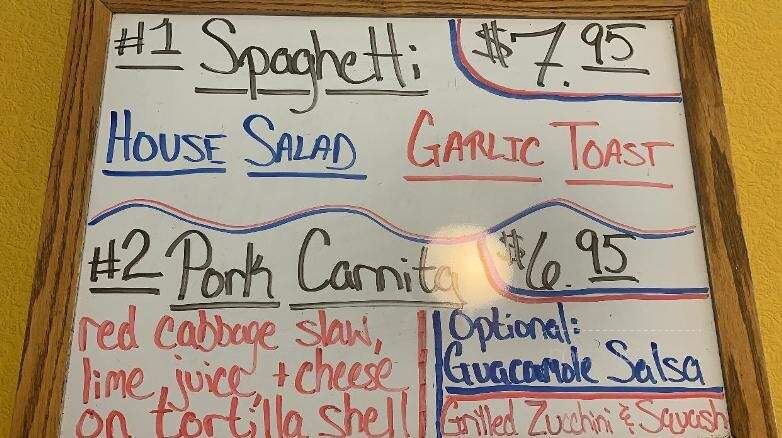 #1 Spaghetti $7.95
HOUSE SALAD GARLIC TOAST
#2 Pork Carnita $6.95
red cabbage slaw,
lime juice, + cheese
on tortilla shell
Optional:
Guacamole Salsa
Grilled Zucchini & Squash